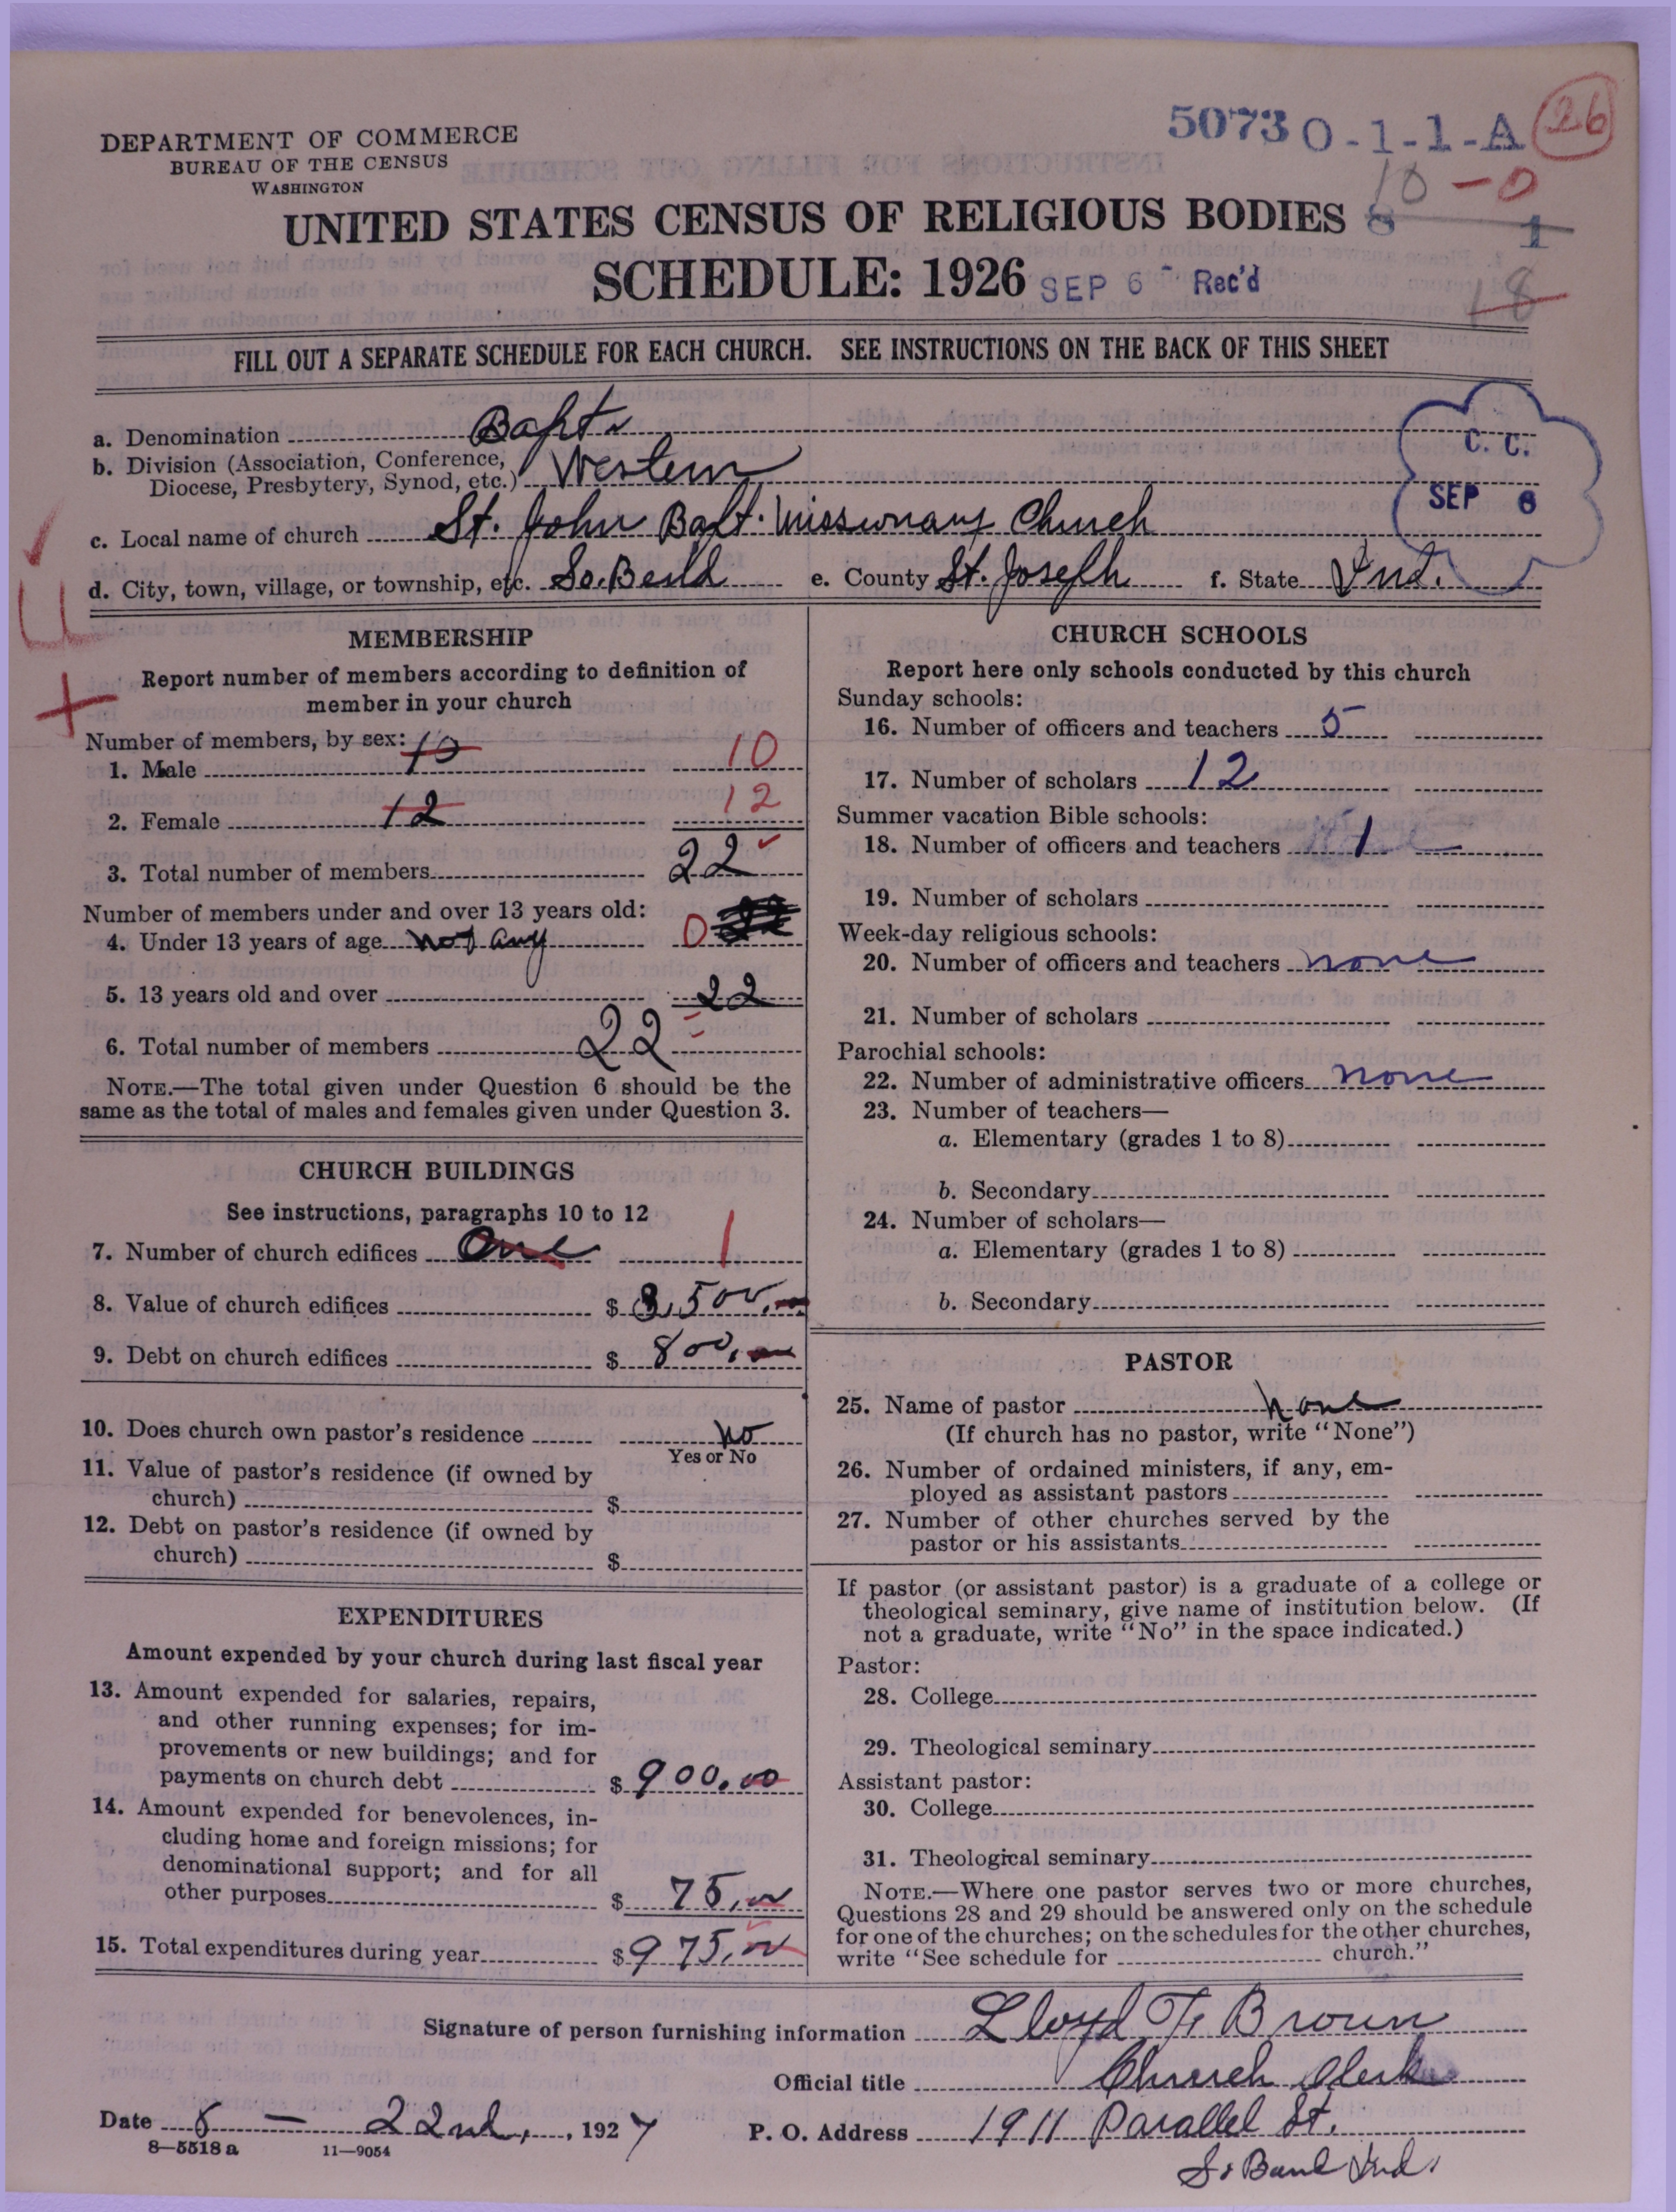 5073 0-1-1-A 26
DEPARTMENT OF COMMERCE
BUREAU OF THE CENSUS
WASHINGTON
10 - 0
UNITED STATES CENSUS OF RELIGIOUS BODIES 8 1
SCHEDULE: 1926 SEP 6 - Rec'd
18
FILL OUT A SEPARATE SCHEDULE FOR EACH CHURCH. SEE INSTRUCTIONS ON THE BACK OF THIS SHEET
a. Denomination Bapt.
b. Division (Association, Conference,
Diocese, Presbytery, Synod, etc.) Western
C. C.
SEP 6
c. Local name of church St. John Bapt. Missionary Church
d. City, town, village, or township, etc. So. Bend e. County St. Joseph f. State Ind.
MEMBERSHIP
Report number of members according to definition of
member in your church
Number of members, by sex:
1. Male 10 10
2. Female 12 12
3. Total number of members 22
Number of members under and over 13 years old:
4. Under 13 years of age not any 0
5. 13 years old and over 22
6. Total number of members 22
NOTE.—The total given under Question 6 should be the
same as the total of males and females given under Question 3.
CHURCH BUILDINGS
See instructions, paragraphs 10 to 12
7. Number of church edifices One 1
8. Value of church edifices $ 3,500.
9. Debt on church edifices $ 800.
10. Does church own pastor's residence No
Yes or No
11. Value of pastor's residence (if owned by
church) $
12. Debt on pastor's residence (if owned by
church) $
EXPENDITURES
Amount expended by your church during last fiscal year
13. Amount expended for salaries, repairs,
and other running expenses; for im-
provements or new buildings; and for
payments on church debt $ 900.00
14. Amount expended for benevolences, in-
cluding home and foreign missions; for
denominational support; and for all
other purposes $ 75.00
15. Total expenditures during year $ 975.00
CHURCH SCHOOLS
Report here only schools conducted by this church
Sunday schools:
16. Number of officers and teachers 5
17. Number of scholars 12
Summer vacation Bible schools:
18. Number of officers and teachers 1
19. Number of scholars
Week-day religious schools:
20. Number of officers and teachers none
21. Number of scholars
Parochial schools:
22. Number of administrative officers none
23. Number of teachers—
a. Elementary (grades 1 to 8)
b. Secondary
24. Number of scholars—
a. Elementary (grades 1 to 8)
b. Secondary
PASTOR
25. Name of pastor None
(If church has no pastor, write "None")
26. Number of ordained ministers, if any, em-
ployed as assistant pastors
27. Number of other churches served by the
pastor or his assistants
If pastor (or assistant pastor) is a graduate of a college or
theological seminary, give name of institution below. (If
not a graduate, write "No" in the space indicated.)
Pastor:
28. College
29. Theological seminary
Assistant pastor:
30. College
31. Theological seminary
NOTE.—Where one pastor serves two or more churches,
Questions 28 and 29 should be answered only on the schedule
for one of the churches; on the schedules for the other churches,
write "See schedule for church."
Signature of person furnishing information Lloyd F. Brown
Official title Church Clerk
Date 8 — 22nd, 1927 P. O. Address 1911 Parallel St.
8—5518a 11—9054
So Bend Ind.